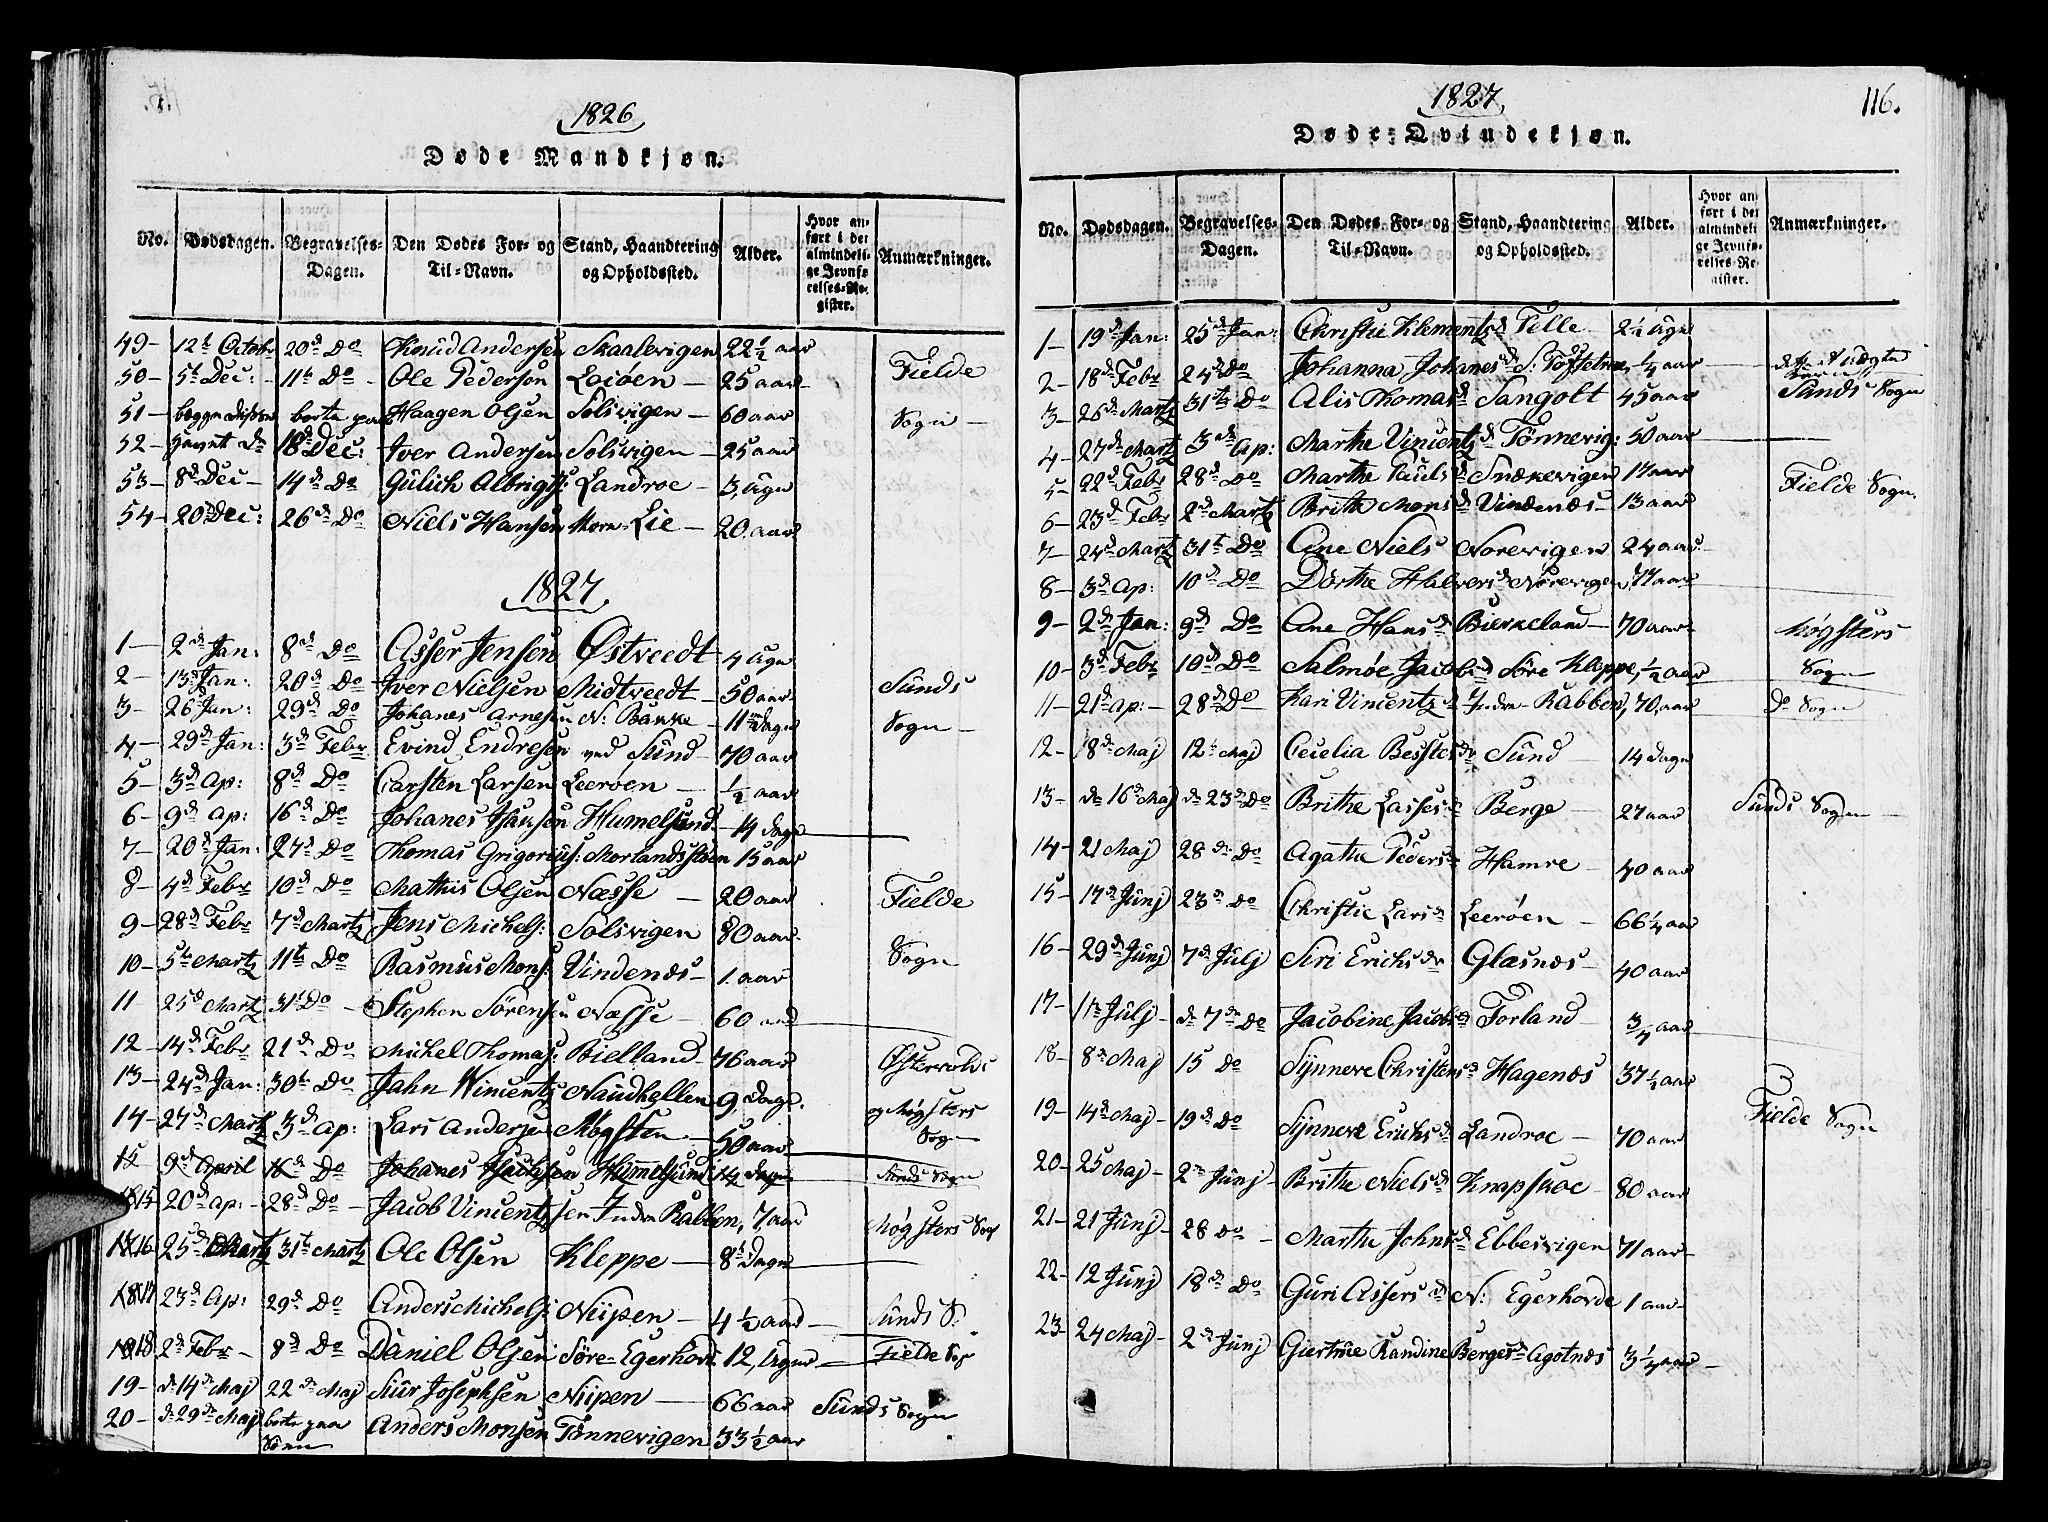 1826
Døde Mandkjøn.
No. Dødsdagen. Begravelses-Dagen. Den Dødes For- og Til-Navn. Stand, Haandtering og Opholdssted. Alder. Hvor anført i det almindelige Jevnførelses-Register. Anmærkninger.
49 - 12t Octobr 20d Do Knud Andersen Skaalevigen 22 1/2 aar
50 - 5t Dec: - 11t Do - Ole Pedersen Leiøen - 25 aar - Fielde
51 - borte paa Haagen Olsen Solsvigen - 60 aar Sogn -
52 - 18d Dec: Iver Andersen Solsvigen - 25 aar
53 - 8d Dec - 14d Do Gülich Albrigts: Landroe - 3, Ugr
54 - 20d Dec: 26d Do Niels Hansen Lie - 20 aar
1827
1 - 2d Jan: 8d Do Asser Jensen Østveedt 4 Ugr
2 - 13d Jan: 20d Do Iver Nielsen Midtveedt - 50 aar Sunds
3 - 26 Jan: 29d Do Johanes Arnesen N: Bakke - 11 Dagr Sogn -
4 - 29d Jan: 3d Febr Evind Endresen ved Sund - 70 aar
5 - 3d Ap: 8d Do Carsten Larsen Leerøen - 1/2 aar
6 - 9d Ap: 16d Do Johanes Isaksen Humelsund - 14 Dagr
7 - 20d Jan: 27d Do Thomas Grigorius: Morlandsstøen 15 aar
8 - 4d Febr 10d Do Mathis Olsen Næsse - 20 aar Fielde
9 - 28d Febr 7d Martz Jens Michels: Solsvigen 80 aar Sogn
10 - 5t Martz 11t Do Rasmus Mons: Vindenæs - 1 aar
11 25d Martz 31t Do - Stephen Sørensen Næsse - 60 aar
12 - 14d Febr 21d Do Michel Thomas: Bielland - 76 aar Østervolds
13 - 24d Jan: 30t Do Jahn Wincentz Naudhellen 9, Dage. og Møgsters
14 - 27d Martz 3d Ap: Lars Andersen Møgsten - 50 aar Sogn
15 9d April 16d Do Johanes Isachsen Hummelsund 14 Dagr Sunds Sogn
15 20d Ap: - 28d Do - Jacob Vincentzsen Indre Rabben, 7 aar Møgsters Sog
16 25d Martz 31t Martz Ole Olsen Kleppe - 8t Dagr
17 23d Ap: 29d Do Anders Michels: Niipen - 4 1/2 aar - Sunds S.
18 2d Febr - 8d Do Daniel Olsen Søre Egerhovd 12, Ugr - Fielde Sog
19 - d. 14d Maj 22d Maj Siur Josephsen Niipen - 66 aar Sunds Sogn
20 - d. 29d Maj borte paa Søen Anders Monsen Tønnevigen 33 1/2 aar
1827
116.
Døde Qvindekjøn.
No. Dødsdagen. Begravelses-Dagen. Den Dødes For- og Til-Navn. Stand, Haandtering og Opholdssted. Alder. Hvor anført i det almindelige Jevnførelses-Register. Anmærkninger.
1 - 19d Jan: 25d Jan: Christie Klementzd Telle - 2 1/2 Ugr
2 - 18d Febr 24d Do Johanna Johanesd S: Toftetræ, 1/4 aar -
3 - 26d Martz 31t Do Alis Thomasd Sangolt 45 aar Sunds Sogn
4 - 27d Martz 3d Ap: Marthe Vincentzd Tønnevig: 50 aar
5 - 22d Febr 28d Do Marthe Paulsd Snækevigen 17 aar Fielde Sogn.
6 - 23d Febr 2d Martz Brithe Monsd Vindenæs - 13 aar
7 - 24d Martz 31t Do Ane Niels Norevigen 24 aar
8 - 3d Ap: 10d Do Dorthe Halversd Norevigen, 77 aar
9 - 2d Jan: 9d Do Ane Hansd Bierkeland - 70 aar - Møgsters
10 - 3d Febr 10d Do Salmøe Jacobsd Søre Kleppe, 1/2 aar Sogn
11 - 21d Ap: - 28d Do Kari Vincentzd Indre Rabben, 70, aar Do Sogn
12 - 8d Maj 12t Maj Cecelia Bessesdr Sund - 14 Dagr
13 - d. 16d Maj d. 23d Do Brithe Lassesd Berge - 27 aar Sunds Sogn
14 - 21 Maj 28d Do Agatha Pedersd Hamre - 40 aar
15 - 17d Junj 23d Do Christie Larsd Leerøen - 66 1/4 aar
16 - 29d Junj 7d Julj Siri Erichsdr Glæsnæs - 40 aar
17 - 1t Julj - d. 7d Do Jacobine Jacobsd Torland - 3/4 aar
18 - 8d Maj 15 Do Synneve Christensd Hagenæs 37 1/2 aar
19 - 14d Maj - 19d Do Synneve Erichsd Landroe - 70 aar Fielde Sogn
20 - 25 Maj - 2d Junj Brithe Nielsd Knapskoe - 80 aar
21 - 21 Junj - 28 Do - Marthe Johnsd Ebbesvigen 71 aar -
22 - 12 Junj 18d Do Guri Assersd N: Egerhovde 1 aar -
23 - 24 Maj - 2d Junj Giertrue Randine Bergesd Agotnæs 3 1/4 aar -